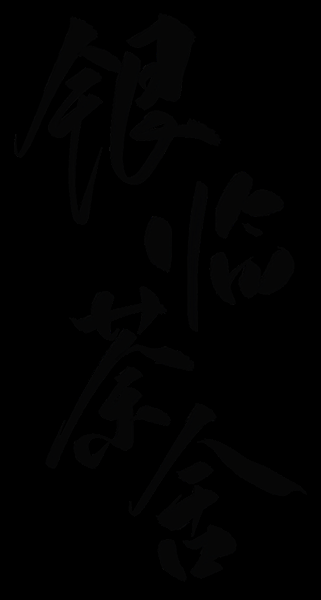 银临茶舍